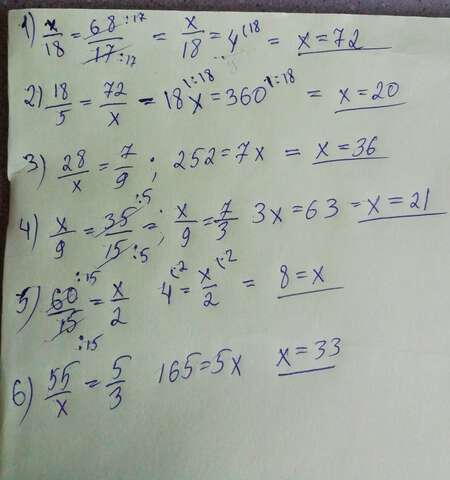 1) x/18 = 68:17/17:17 = x/18 = 4 (·18 = x = 72
2) 18/5 = 72/x = 18x = 360 |:18 = x = 20
3) 28/x = 7/9 ; 252 = 7x = x = 36
4) x/9 = 35:5/15:5 = ; x/9 = 7/3 3x = 63 = x = 21
5) 60:15/15:15 = x/2 4 (·2 = x/2 (·2 = 8 = x
6) 55/x = 5/3 165 = 5x x = 33